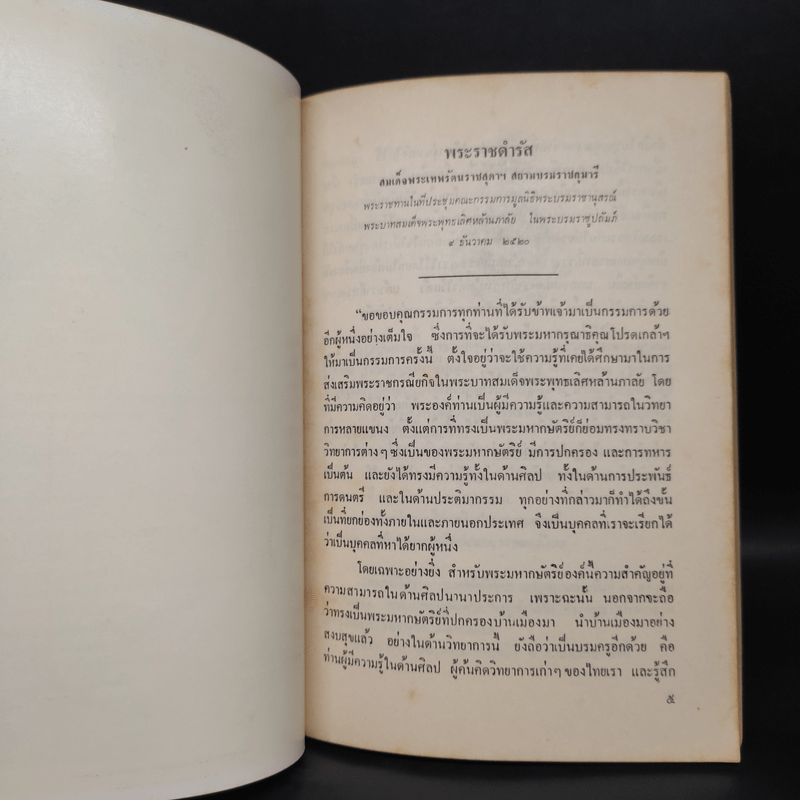 พระราชดำรัส
สมเด็จพระเทพรัตนราชสุดาฯ สยามบรมราชกุมารี
พระราชทานในที่ประชุมคณะกรรมการมูลนิธิพระบรมราชานุสรณ์
พระบาทสมเด็จพระพุทธเลิศหล้านภาลัย ในพระบรมราชูปถัมภ์
๙ ธันวาคม ๒๕๒๐
“ขอขอบคุณกรรมการทุกท่านที่ได้รับข้าพเจ้ามาเป็นกรรมการด้วย
อีกผู้หนึ่งอย่างเต็มใจ ซึ่งการที่จะได้รับพระมหากรุณาธิคุณโปรดเกล้าฯ
ให้มาเป็นกรรมการครั้งนี้ ตั้งใจอยู่ว่าจะใช้ความรู้ที่เคยได้ศึกษามาในการ
ส่งเสริมพระราชกรณียกิจในพระบาทสมเด็จพระพุทธเลิศหล้านภาลัย โดย
ที่มีความคิดอยู่ว่า พระองค์ท่านเป็นผู้มีความรู้และความสามารถในวิทยา
การหลายแขนง ตั้งแต่การที่ทรงเป็นพระมหากษัตริย์ก็ย่อมทรงทราบวิชา
วิทยาการต่างๆ ซึ่งเป็นของพระมหากษัตริย์ มีการปกครอง และการทหาร
เป็นต้น และยังได้ทรงมีความรู้ทั้งในด้านศิลป ทั้งในด้านการประพันธ์
การดนตรี และในด้านประติมากรรม ทุกอย่างที่กล่าวมาก็ทำได้ถึงขั้น
เป็นที่ยกย่องทั้งภายในและภายนอกประเทศ จึงเป็นบุคคลที่เราจะเรียกได้
ว่าเป็นบุคคลที่หาได้ยากผู้หนึ่ง
โดยเฉพาะอย่างยิ่ง สำหรับพระมหากษัตริย์องค์นี้ความสำคัญอยู่ที่
ความสามารถในด้านศิลปนานาประการ เพราะฉะนั้น นอกจากจะถือ
ว่าทรงเป็นพระมหากษัตริย์ที่ปกครองบ้านเมืองมา นำบ้านเมืองมาอย่าง
สงบสุขแล้ว อย่างในด้านวิทยาการนี้ ยังถือว่าเป็นบรมครูอีกด้วย คือ
ท่านผู้มีความรู้ในด้านศิลป ผู้ค้นคิดวิทยาการเก่าๆ ของไทยเรา และรู้สึก
๕